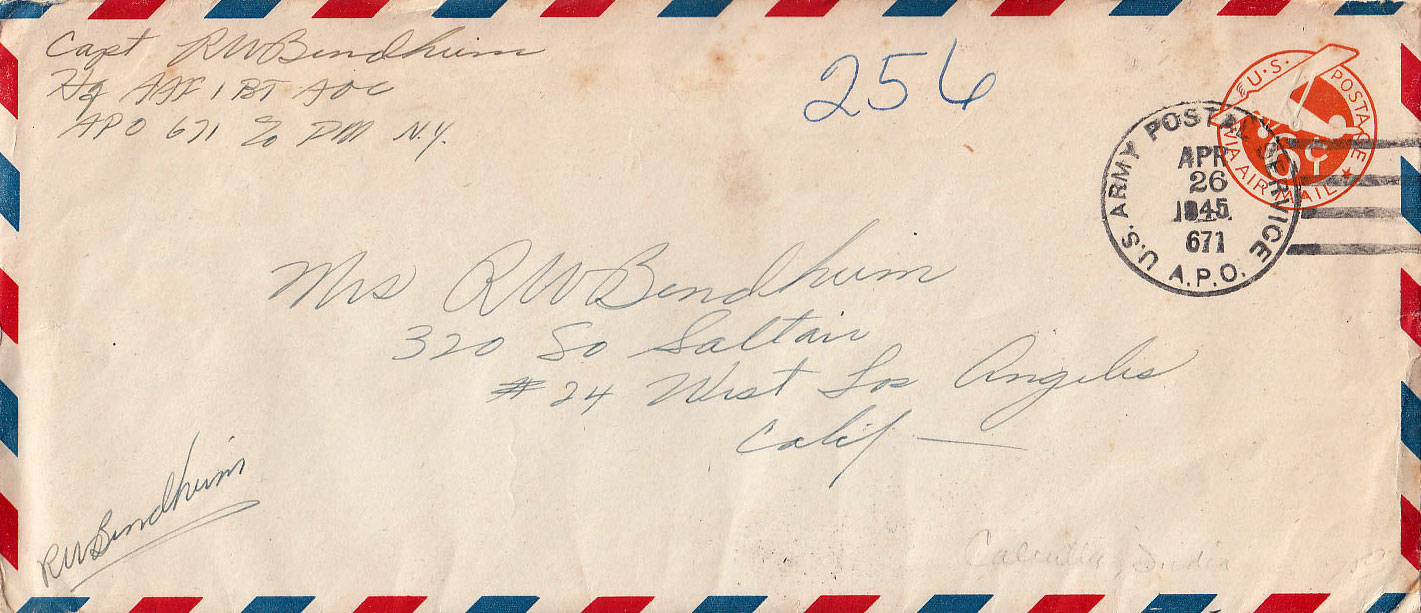 Capt RW Bendheim
Hq AAF IBT AOC
APO 671 c/o PM N.Y.
256
U.S. POSTAGE
VIA AIR MAIL
6¢
U.S. ARMY POSTAL SERVICE
APR
26
1945
671
A.P.O.
Mrs RW Bendheim
320 So Saltair
#24 West Los Angeles
Calif —
RW Bendheim
Calcutta, India